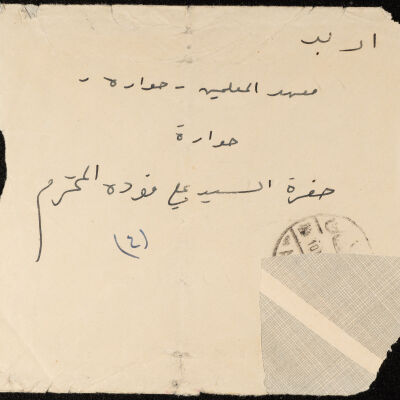 اربد
معهد المعلمين - حواره -
حوارة
حضرة السيد علي فوده المحترم
(٤)